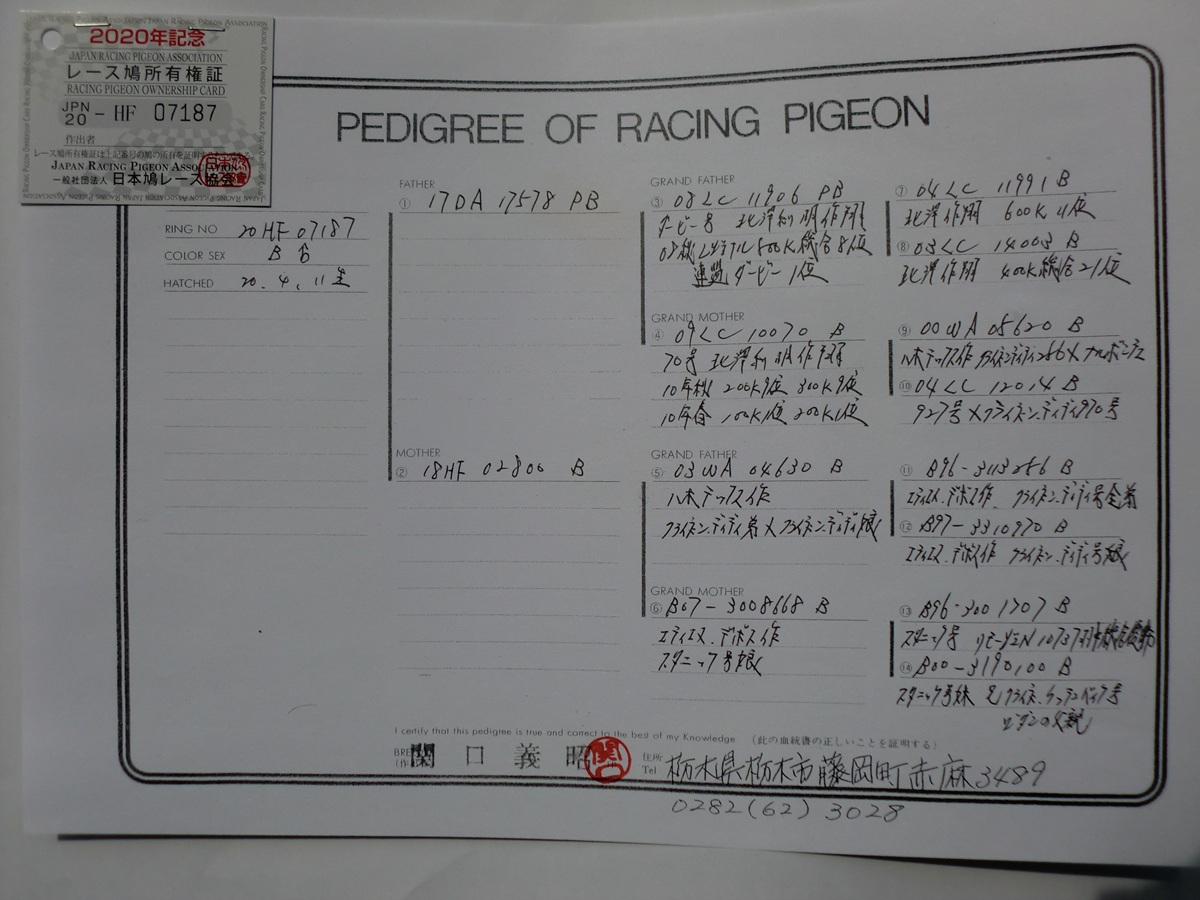 2020年記念
JAPAN RACING PIGEON ASSOCIATION
レース鳩所有権証
RACING PIGEON OWNERSHIP CARD
JPN 20 - HF 07187
作出者
レース鳩所有権証は上記番号の鳩の所有を証明する
JAPAN RACING PIGEON ASSOCIATION
一般社団法人 日本鳩レース協会
PEDIGREE OF RACING PIGEON
RING NO 20HF07187
COLOR SEX B ♂
HATCHED 20.4.11生
FATHER
① 17DA 17578 PB
MOTHER
② 18HF 02800 B
GRAND FATHER
③ 08LC 11906 PB
ダービー号 北澤利明作翔
500K総合8位
連盟ダービー1位
GRAND MOTHER
④ 09LC 10070 B
70号 北澤利明作翔
10年秋 200K9位 300K9位
10年春 100K1位 200K1位
GRAND FATHER
⑤ 03WA 04630 B
ハホデックス作
クライネンディディ弟×クライネンディディ娘
GRAND MOTHER
⑥ B07-3008668 B
エティエヌ.デボス作
スタニック号娘
⑦ 04LC 11991 B
北澤作翔 600K 11位
⑧ 03LC 14003 B
北澤作翔 400K総合21位
⑨ 00WA 05620 B
⑩ 04LC 12014 B
927号×クライネンディディ970号
⑪ B96-3113256 B
エティエヌ.デボス作 クライネン.ディディ号全弟
⑫ B97-3310970 B
エティエヌ.デボス作 クライネン.ディディ号娘
⑬ B96-3001707 B
スタニック号
⑭ B00-3190100 B
スタニック号妹
I certify that this pedigree is true and correct to the best of my Knowledge (此の血統書の正しいことを証明する)
関口義昭
住所 栃木県栃木市藤岡町赤麻3489
Tel 0282(62)3028